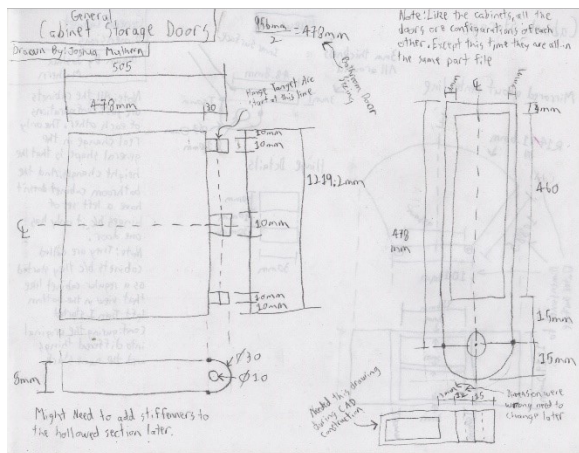 General
Cabinet Storage Doors
Drawn By: Joshua Mulhern
956mm
2
=478mm
Bathroom Door
Sizing
Note: Like the cabinets, all the
doors are configurations of each
other. Except this time they are all in
the same part file
505
478mm
30
Hinge Target Arc
start at this line
10mm
10mm
10mm
10mm
10mm
1219.2mm
℄
8mm
Ø30
Ø10
Might Need to add stiffeners to
the hollowed section later.
℄
460
478
mm
15mm
15mm
Needed this drawing
during CAD
construction
12
15
Dimension were
wrong need to
change later